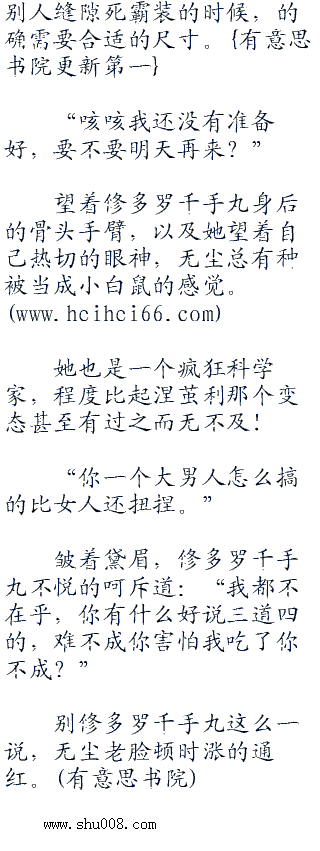 别人缝隙死霸装的时候，的
确需要合适的尺寸。{有意思
书院更新第一}
“咳咳我还没有准备
好，要不要明天再来？”
望着修多罗千手丸身后
的骨头手臂，以及她望着自
己热切的眼神，无尘总有种
被当成小白鼠的感觉。
(www.hcihci66.com)
她也是一个疯狂科学
家，程度比起涅茧利那个变
态甚至有过之而无不及！
“你一个大男人怎么搞
的比女人还扭捏。”
皱着黛眉，修多罗千手
丸不悦的呵斥道：“我都不
在乎，你有什么好说三道四
的，难不成你害怕我吃了你
不成？”
别修多罗千手丸这么一
说，无尘老脸顿时涨的通
红。(有意思书院)
www.shu008.com